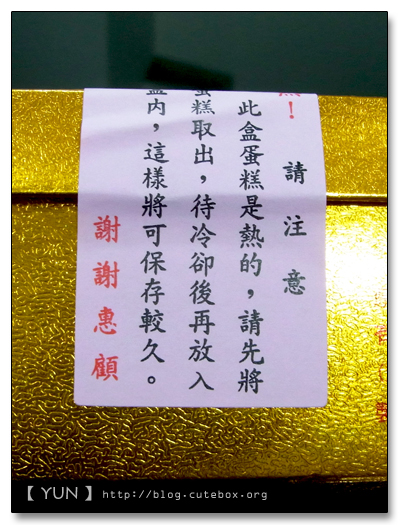 請注意
此盒蛋糕是熱的，請先將
蛋糕取出，待冷卻後再放入
盒內，這樣將可保存較久。
謝謝惠顧
【 YUN 】http://blog.cutebox.org